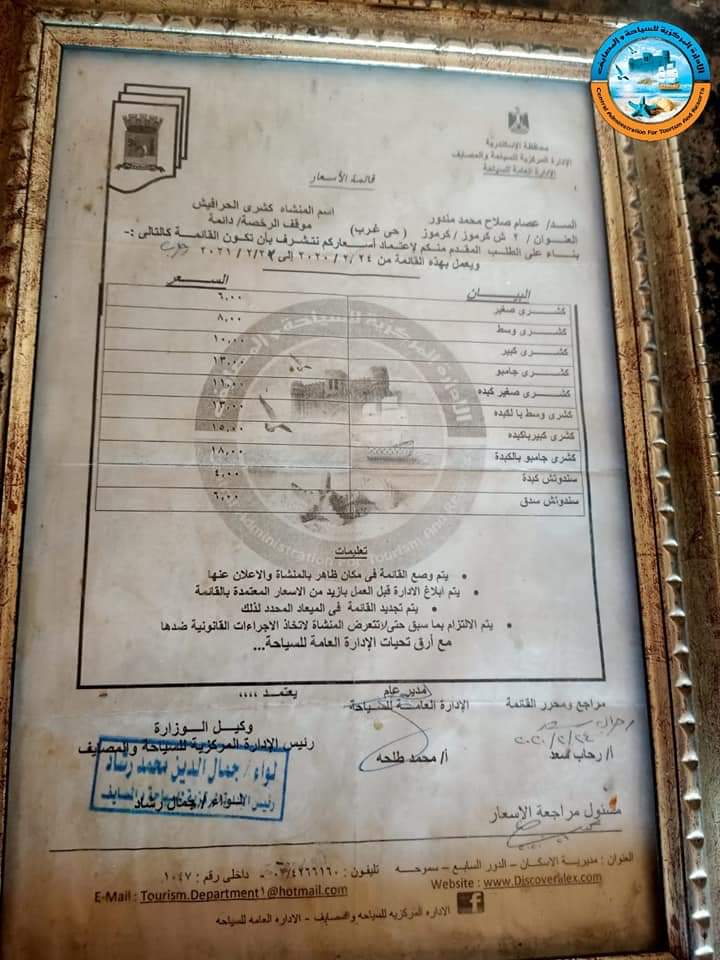 الإدارة المركزية للسياحة والمصايف
Central Administration For Tourism And Resorts
محافظة الإسكندرية
الإدارة المركزية للسياحة والمصايف
الإدارة العامة للسياحة
قائمة الأسعار
السيد/ عصام صلاح محمد مندور
اسم المنشاه كشرى الحرافيش
العنوان / ٢ ش كرموز / كرموز ( حى غرب )
موقف الرخصة/ دائمة
بناء على الطلب المقدم منكم لاعتماد أسعاركم نتشرف بأن تكون القائمة كالتالى :-
ويعمل بهذه القائمة من ٢٠٢٠/٢/٢٤ إلى ٢٠٢١/٢/٢٤
البيان السعر
كشرى صغير ٦,٠٠
كشرى وسط ٨,٠٠
كشرى كبير ١٠,٠٠
كشرى جامبو ١٣,٠٠
كشرى صغير كبده ١١,٠٠
كشرى وسط با لكبده ١٣,٠٠
كشرى كبيرباكبده ١٥,٠٠
كشرى جامبو بالكبدة ١٨,٠٠
سندوتش كبدة ٤,٠٠
سندوتش سدق ٦,٠٠
تعليمات
• يتم وضع القائمة فى مكان ظاهر بالمنشاة والاعلان عنها
• يتم أبلاغ الادارة قبل العمل بازيد من الاسعار المعتمدة بالقائمة
• يتم تجديد القائمة فى الميعاد المحدد لذلك
• يتم الالتزام بما سبق حتى/تتعرض المنشاة لاتخاذ الاجراءات القانونية ضدها
مع أرق تحيات الإدارة العامة للسياحة...
مراجع ومحرر القائمة
مدير عام
الإدارة العامة للسياحة
يعتمد ,,,,
وكيل الوزارة
رئيس الإدارة المركزية للسياحة والمصايف
٢٠٢٠/٢/٢٤
أ/ رحاب سعد
أ/ محمد طلحه
لواء / جمال الدين محمد رشاد
رئيس الإدارة المركزية للسياحة والمصايف
لواء / جمال رشاد
مسئول مراجعة الاسعار
العنوان : مديرية الاسكان – الدور السابع – سموحه تليفون : ٠٣/٤٢٦٦١٦٠ - داخلى رقم : ١٠٤٧
E-Mail : Tourism.Department1@hotmail.com
Website : www.Discoveralex.com
الاداره المركزيه للسياحه والمصايف - الاداره العامه للسياحه